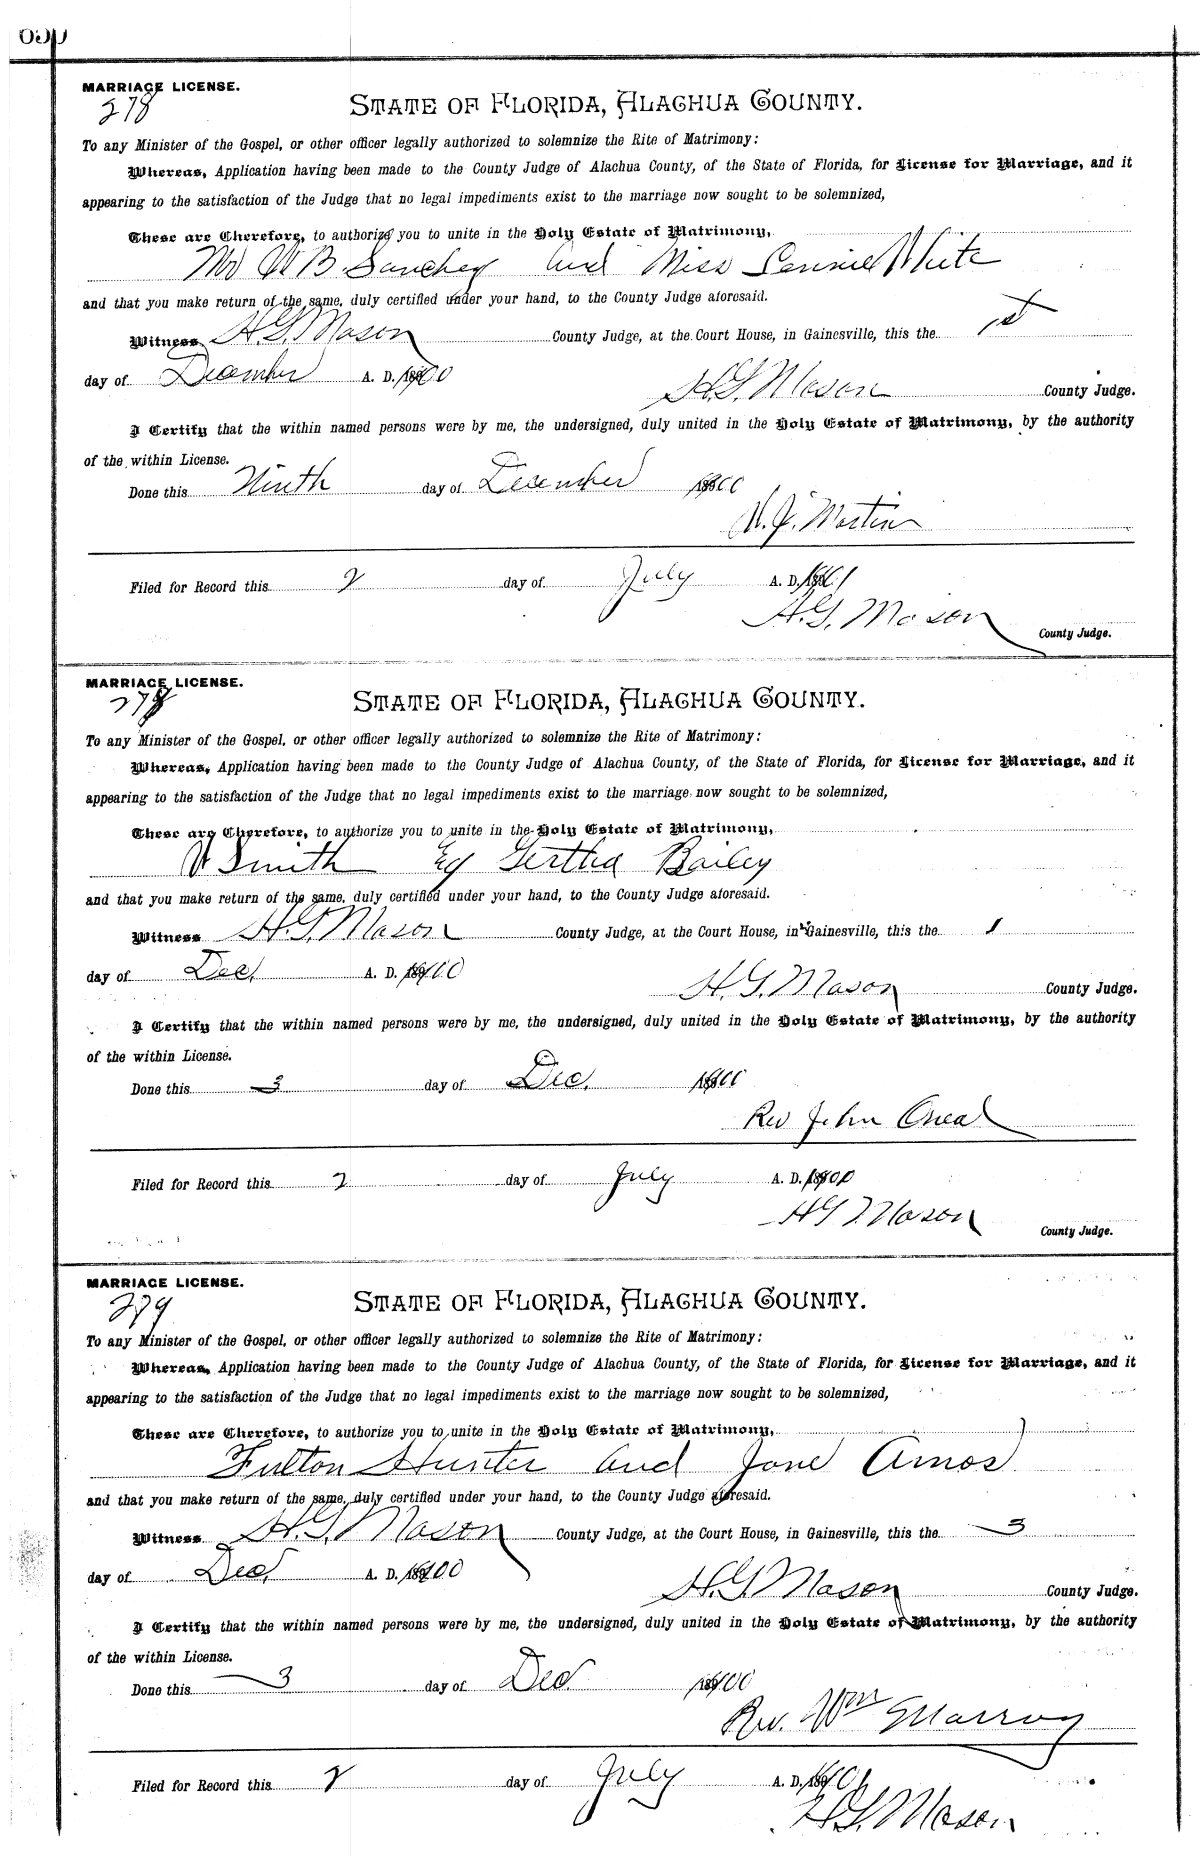 MARRIAGE LICENSE.
278
STATE OF FLORIDA, ALACHUA COUNTY.
To any Minister of the Gospel, or other officer legally authorized to solemnize the Rite of Matrimony:
Whereas, Application having been made to the County Judge of Alachua County, of the State of Florida, for License for Marriage, and it
appearing to the satisfaction of the Judge that no legal impediments exist to the marriage now sought to be solemnized,
These are Therefore, to authorize you to unite in the Holy Estate of Matrimony,
Mr W B. Sanchez and Miss Lennie White
and that you make return of the same, duly certified under your hand, to the County Judge aforesaid.
Witness H. G. Mason County Judge, at the Court House, in Gainesville, this the 1st
day of December A. D. 1900 H. G. Mason County Judge.
I Certify that the within named persons were by me, the undersigned, duly united in the Holy Estate of Matrimony, by the authority
of the within License.
Done this Ninth day of December 1900
Martin
Filed for Record this 2 day of July A. D. 1901
H. G. Mason
County Judge.
MARRIAGE LICENSE.
278
STATE OF FLORIDA, ALACHUA COUNTY.
To any Minister of the Gospel, or other officer legally authorized to solemnize the Rite of Matrimony:
Whereas, Application having been made to the County Judge of Alachua County, of the State of Florida, for License for Marriage, and it
appearing to the satisfaction of the Judge that no legal impediments exist to the marriage now sought to be solemnized,
These are Therefore, to authorize you to unite in the Holy Estate of Matrimony,
Smith Gertha Bailey
and that you make return of the same, duly certified under your hand, to the County Judge aforesaid.
Witness H. G. Mason County Judge, at the Court House, in Gainesville, this the 1
day of Dec. A. D. 1900 H. G. Mason County Judge.
I Certify that the within named persons were by me, the undersigned, duly united in the Holy Estate of Matrimony, by the authority
of the within License.
Done this 3 day of Dec. 1900
Rev John Oneal
Filed for Record this 2 day of July A. D.
H G Mason
County Judge.
MARRIAGE LICENSE.
279
STATE OF FLORIDA, ALACHUA COUNTY.
To any Minister of the Gospel, or other officer legally authorized to solemnize the Rite of Matrimony:
Whereas, Application having been made to the County Judge of Alachua County, of the State of Florida, for License for Marriage, and it
appearing to the satisfaction of the Judge that no legal impediments exist to the marriage now sought to be solemnized,
These are Therefore, to authorize you to unite in the Holy Estate of Matrimony,
Fulton Hunter and Jane Amos
and that you make return of the same, duly certified under your hand, to the County Judge aforesaid.
Witness H. G. Mason County Judge, at the Court House, in Gainesville, this the 3
day of Dec. A. D. 1900 H. G. Mason County Judge.
I Certify that the within named persons were by me, the undersigned, duly united in the Holy Estate of Matrimony, by the authority
of the within License.
Done this 3 day of Dec 1900
Rev. Wm Murray
Filed for Record this 2 day of July A. D. 1901
H. G. Mason